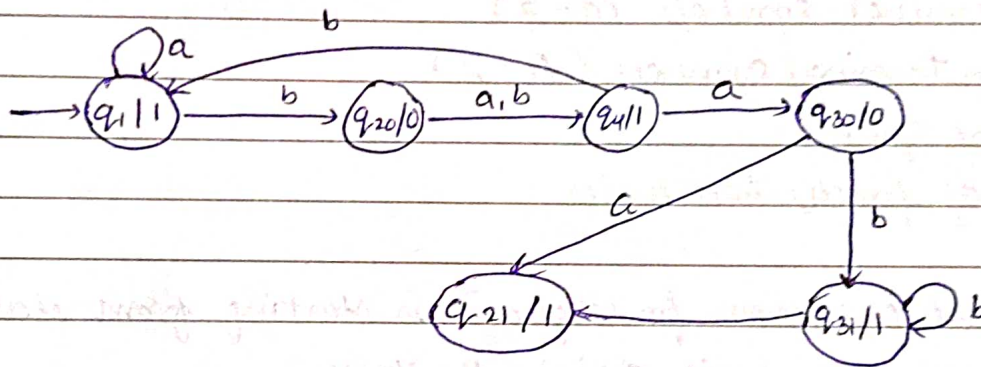 b
a
q1/1
b
q20/0
a, b
q4/1
a
q30/0
a
b
q21/1
q31/1
b